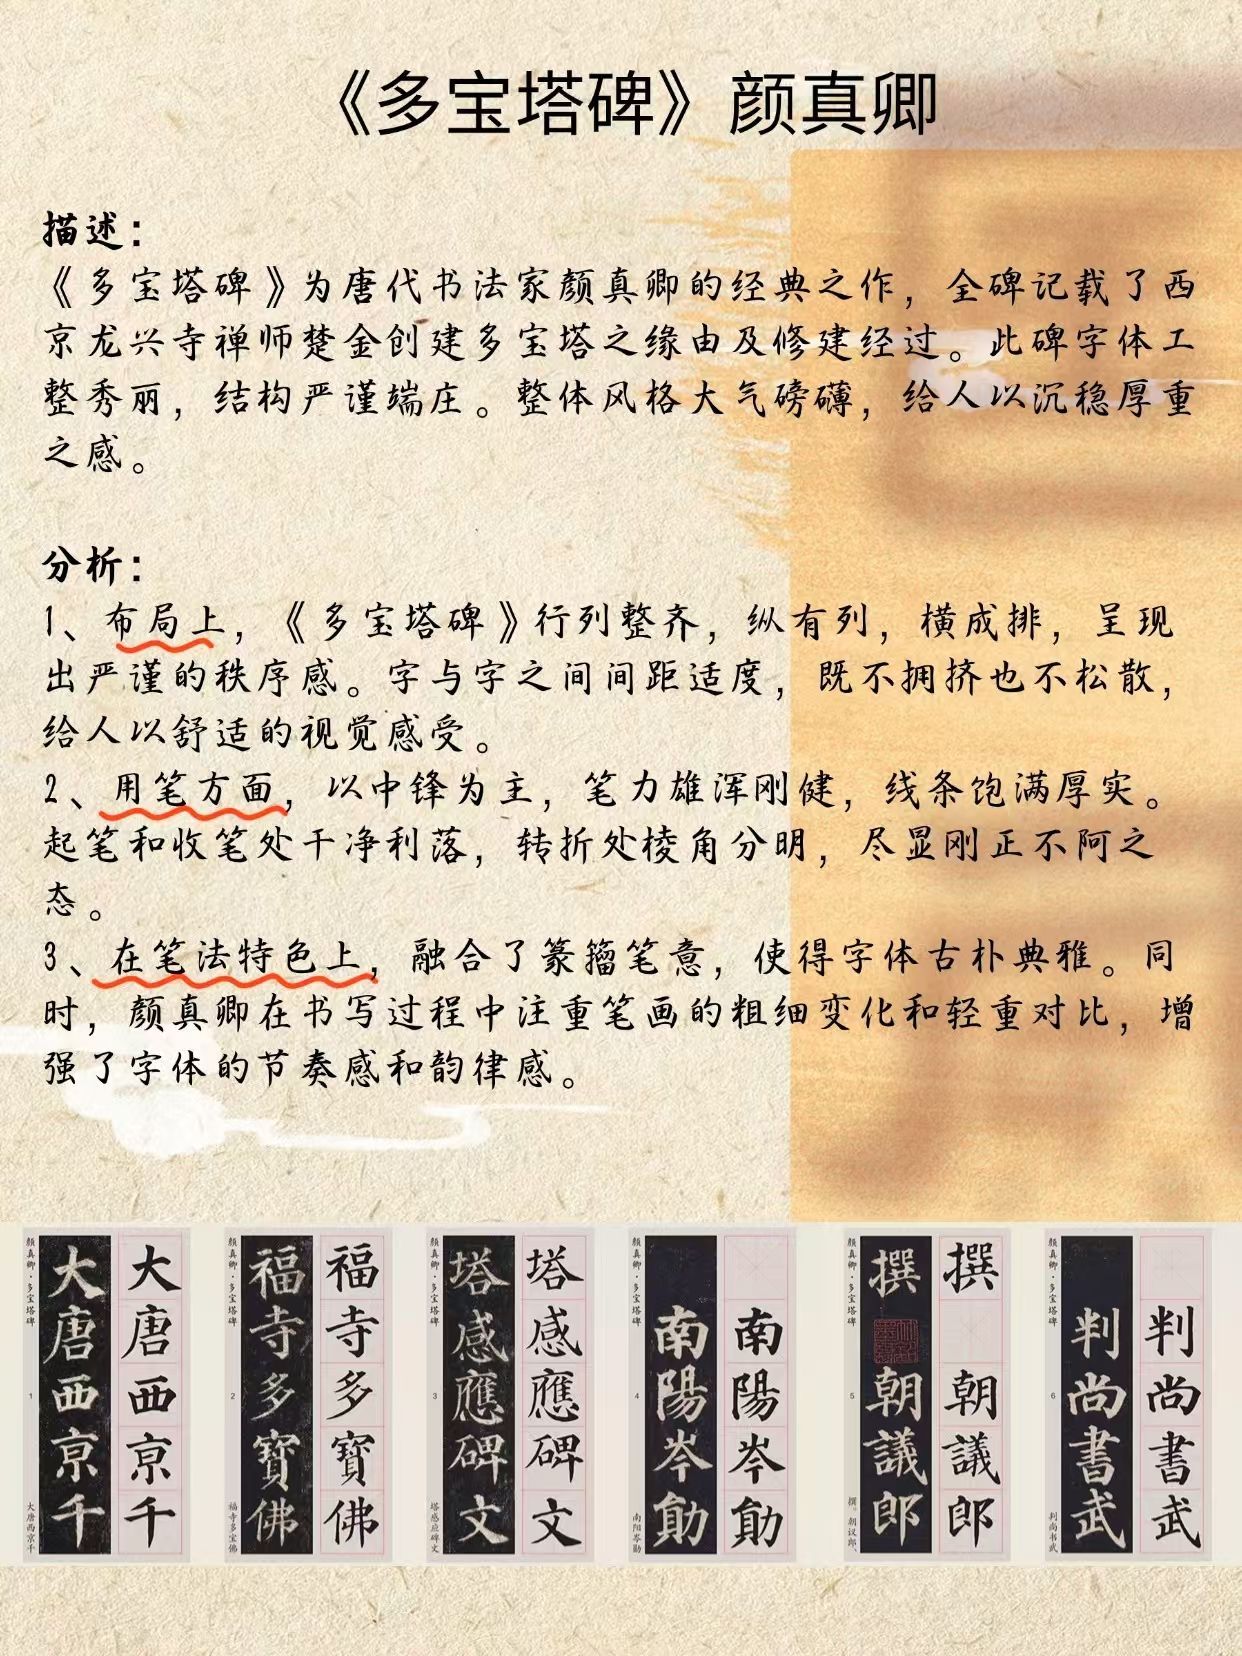 《多宝塔碑》颜真卿
描述：
《多宝塔碑》为唐代书法家颜真卿的经典之作，全碑记载了西
京龙兴寺禅师楚金创建多宝塔之缘由及修建经过。此碑字体工
整秀丽，结构严谨端庄。整体风格大气磅礴，给人以沉稳厚重
之感。
分析：
1、布局上，《多宝塔碑》行列整齐，纵有列，横成排，呈现
出严谨的秩序感。字与字之间间距适度，既不拥挤也不松散，
给人以舒适的视觉感受。
2、用笔方面，以中锋为主，笔力雄浑刚健，线条饱满厚实。
起笔和收笔处干净利落，转折处棱角分明，尽显刚正不阿之
态。
3、在笔法特色上，融合了篆籀笔意，使得字体古朴典雅。同
时，颜真卿在书写过程中注重笔画的粗细变化和轻重对比，增
强了字体的节奏感和韵律感。
顏真卿·多宝塔碑
1
大唐西京千
大唐西京千
大唐西京千
顏真卿·多宝塔碑
2
福寺多宝佛
福寺多寶佛
福寺多寶佛
顏真卿·多宝塔碑
3
塔感应碑文
塔感應碑文
塔感應碑文
顏真卿·多宝塔碑
4
南阳岑勋
南陽岑勛
南陽岑勛
顏真卿·多宝塔碑
5
撰。朝议郎、
撰朝議郎
撰朝議郎
顏真卿·多宝塔碑
6
判尚书武
判尚書武
判尚書武